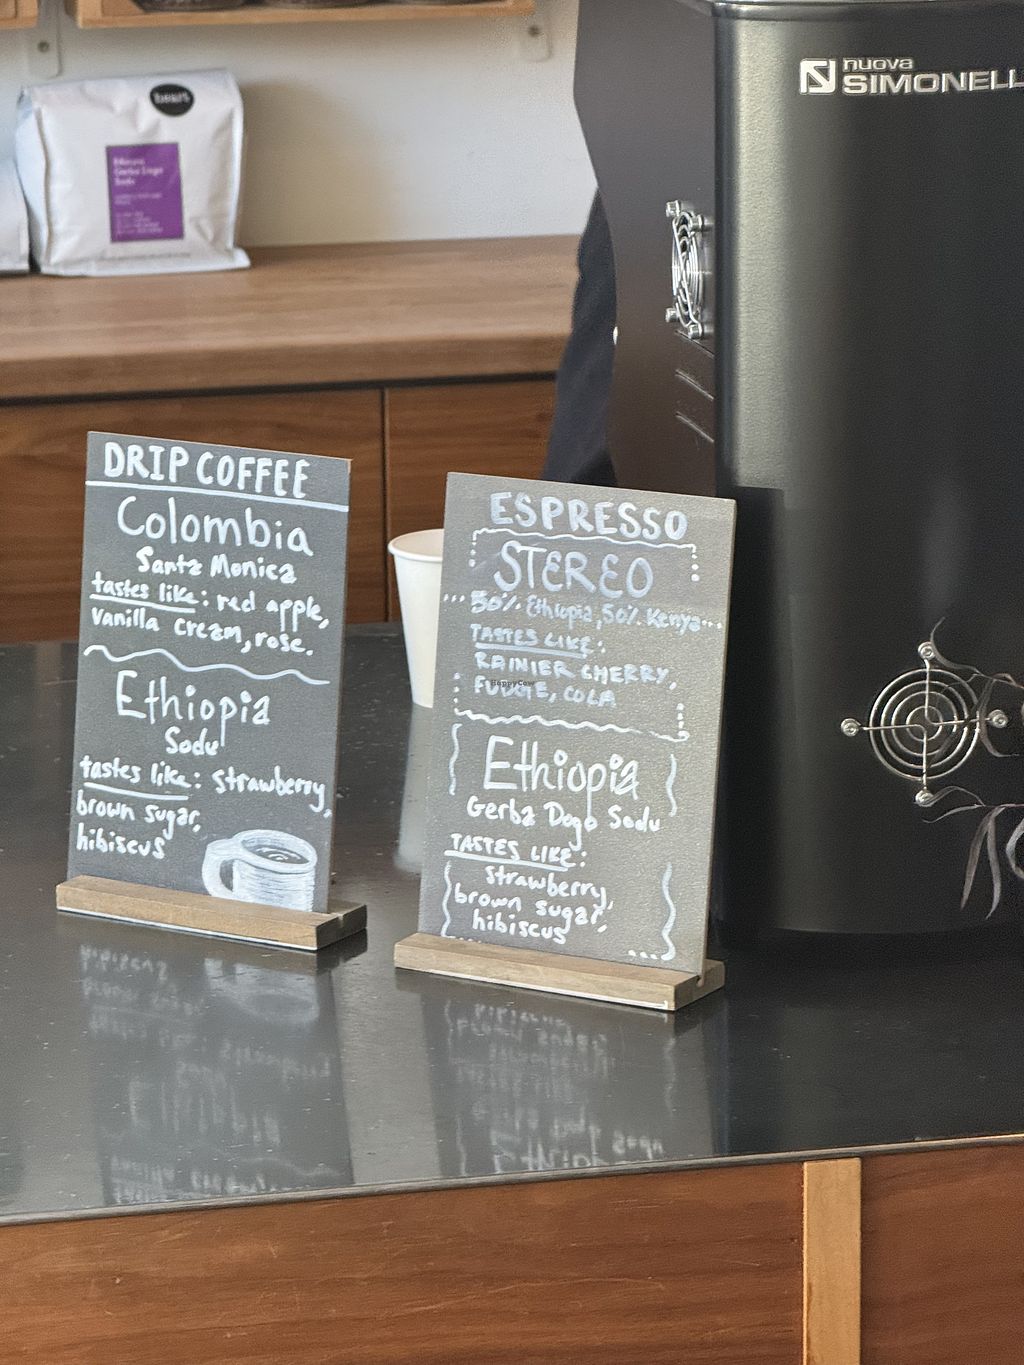 heart
Ethiopia
Gerba Dogo
Sodu
nuova
SIMONELL
DRIP COFFEE
Colombia
Santa Monica
tastes like: red apple,
vanilla cream, rose.
Ethiopia
Sodu
tastes like: strawberry,
brown sugar,
hibiscus
ESPRESSO
STEREO
50% Ethiopia, 50% Kenya
TASTES LIKE:
RAINIER CHERRY,
FUDGE, COLA
HappyCow
Ethiopia
Gerba Dogo Sodu
TASTES LIKE:
strawberry,
brown sugar,
hibiscus